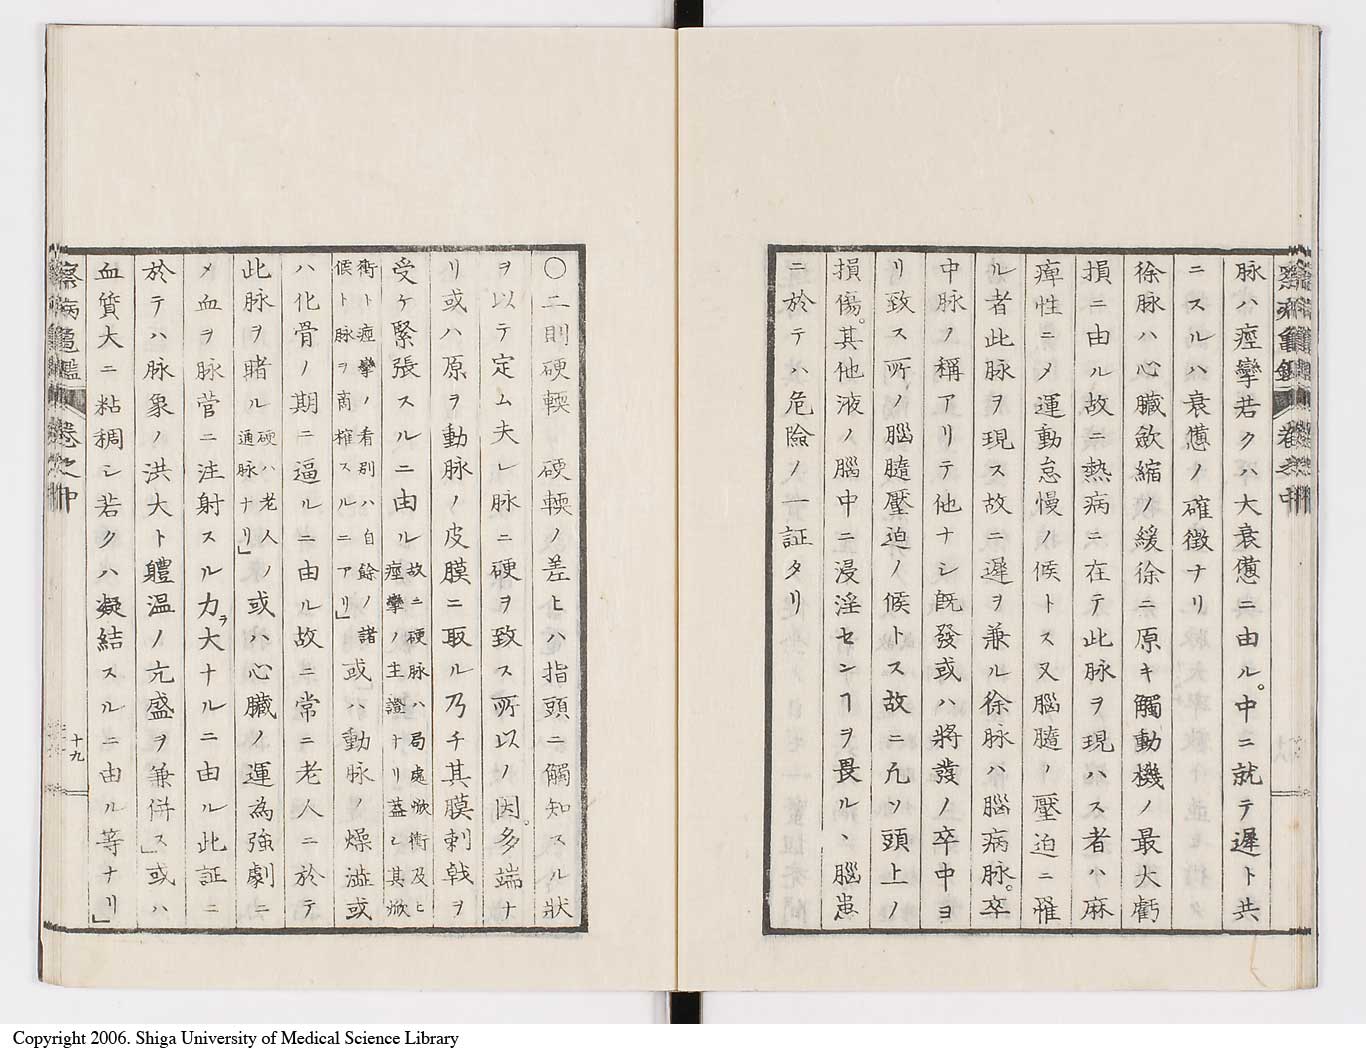 脉ハ痙攣若クハ大衰憊ニ由ル。中ニ就テ遲ト共
ニスルハ衰憊ノ確徴ナリ
徐脉ハ心臓歛縮ノ緩徐ニ原キ觸動機ノ最大虧
損ニ由ル故ニ熱病ニ在テ此脉ヲ現ハス者ハ麻
痺性ニメ運動怠慢ノ候トス又腦髓ノ壓迫ニ罹
ル者此脉ヲ現ス故ニ遲ヲ兼ル徐脉ハ腦病脉。卒
中脉ノ稱アリテ他ナシ既發或ハ將發ノ卒中ヨ
リ致ス所ノ腦髓壓迫ノ候トス故ニ凢ソ頭上ノ
損傷。其他液ノ腦中ニ浸淫センヿヲ畏ルヽ腦患
ニ於テハ危險ノ一証タリ
察病亀鑑 卷之中
〇二則硬輭 硬輭ノ差ヒハ指頭ニ觸知スル狀
ヲ以テ定ム夫レ脉ニ硬ヲ致ス所以ノ因。多端ナ
リ或ハ原ヲ動脉ノ皮膜ニ取ル乃チ其膜刺戟ヲ
受ケ緊張スルニ由ル故ニ硬脉ハ局處焮衝及ヒ痙攣ノ主證ナリ蓋シ其焮
衝ト痙攣ノ看別ハ自餘ノ諸候ト脉ヲ商榷スルニアリ」或ハ動脉ノ燥澁或
ハ化骨ノ期ニ逼ルニ由ル故ニ常ニ老人ニ於テ
此脉ヲ睹ル硬ハ老人ノ通脉ナリ」或ハ心臓ノ運為強劇ニ
メ血ヲ脉菅ニ注射スル力ヲ大ナルニ由ル此証ニ
於テハ脉象ノ洪大ト軆温ノ亢盛ヲ兼併ス」或ハ
血質大ニ粘稠シ若クハ凝結スルニ由ル等ナリ」
察病亀鑑 卷之中
十九
Copyright 2006. Shiga University of Medical Science Library